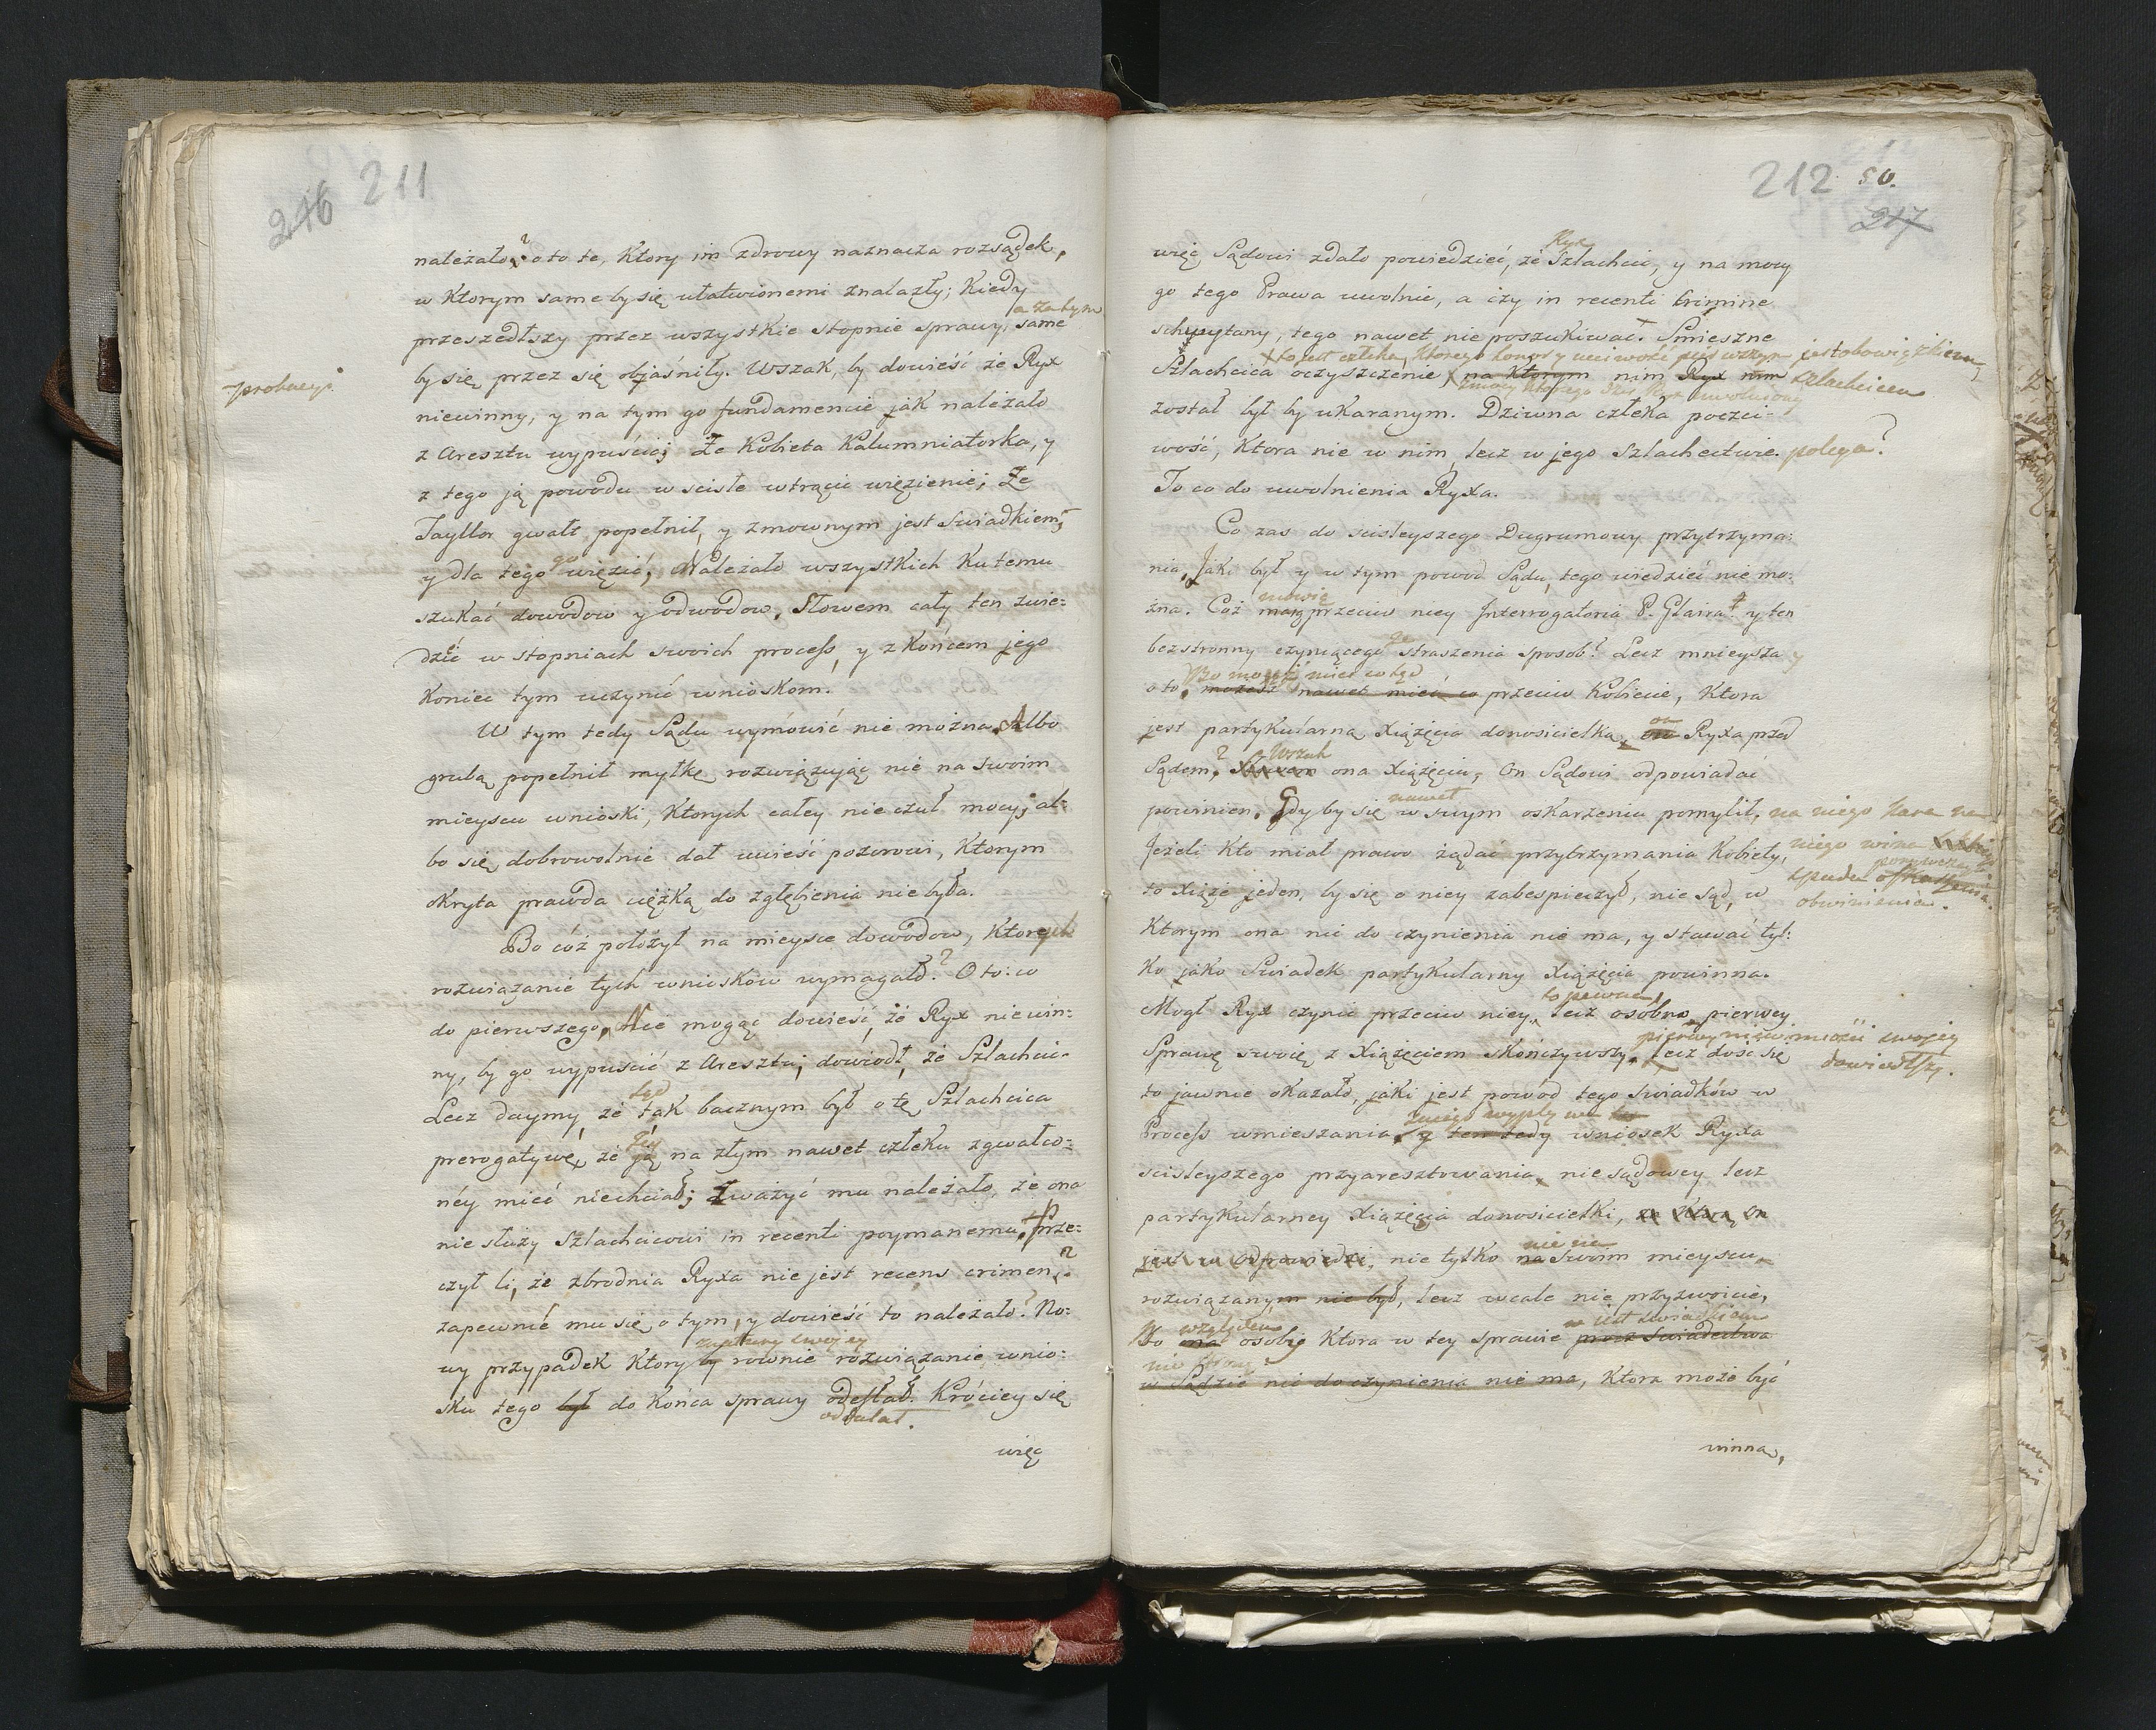 246 211
należało? oto te, Ktory im zdrowy naznacza rozsądek,
w Ktorym same by się ułatwionemi znalazły; Kiedy
a zatym
przeszedłszy przez wszystkie stopnie sprawy, same
by się przez się objaśniły. Wszak, by dowieść że Ryx
probacyi
niewinny, y na tym go fundamencie jak należało
z Aresztu wypuścić; Że Kobieta Kalumniatorka, y
z tego ją powodu w scisłe wtrącić więzienie; Że
Tayllor gwałt popełnił, y zmownym jest Swiadkiem,
y dla tego go więzić; Należało wszystkich Ku temu
szukać dowodow y odwodow. Słowem cały ten zwie=
dzić w stopniach swoich process, y z Końcem jego
Koniec tym uczynić wnioskom.
W tym tedy Sądu wymówić nie można. Albo
grubą popełnił myłkę rozwiązując nie na swoim
mieyscu wnioski, Ktorych całey nie czuł mocy; al=
bo się dobrowolnie dał unieść pozorowi, Ktorym
okryta prawda ciężką do zgłębienia nie była.
Bo cóż położył na mieysce dowodow, Ktorych
rozwiązanie tych wniosków wymagało? Oto: co
do pierwszego, Nie mogąc dowieść, że Ryx niewin=
ny, by go wypuścić z Aresztu; dowiodł, że Szlachci=
Lecz daymy, że Sąd tak bacznym był o tę Szlachcica
prerogatywę, że jey na złym nawet człeku zgwałco=
ney mieć niechciał; Zważyć mu należało, że ona
nie służy Szlachcicowi in recenti poymanemu. Prze=
czył li, że zbrodnia Ryxa nie jest recens crimen?
zapewnić mu się o tym, y dowieść to należało? No=
natury swojey
wy przypadek Ktory by rownie rozwiązanie wnio=
sku tego był do Końca sprawy odesłał. Króciey się
oddalał.
więc
212 50.
217
Ryx
więc Sądowi zdało powiedzieć, że Szlachcic, y na mocy
go tego Prawa uwolnić, a czy in recenti crimine
schwytany, tego nawet nie poszukiwać. Smieszne
to jest człeka, Ktorego honor y uczciwość pierwszym jest obowiązkiem,
Szlachcica oczyszczenie na Ktorym nim Ryx nim Szlachcicem
został był by ukaranym. Dziwna człeka poczci=
wość, Ktora nie w nim, lecz w jego Szlachectwie polega?
To co do uwolnienia Ryxa.
Co zas do scisleyszego Dugrumowy przytrzyma=
nia, Jaki był y w tym powod Sądu, tego wiedzieć nie mo=
żna. Coż mowią przeciw niey Interrogatoria P. Glaira? y ten
bezstronny czyniącego straszenia sposob? Lecz mnieysza
oto, Bo możeż mieć co Sąd możesz nawet mieć co przeciw Kobiecie, Ktora
jest partykularną Xiążęcia donosicielką, on Ryxa przed
Sądem? Wszak ona Xiążęciu, On Sądowi odpowiadać
powinien. Gdy by się nawet w swym oskarżeniu pomylił, na niego Kara na
Jeżeli Kto miał prawo żądać przytrzymania Kobiety, niego wina
spada
to Xiąże jeden, by się o niey zabespieczył, nie Sąd, w obwinienia.
Ktorym ona nic do czynienia nie ma, y stawać tyl=
Ko jako Swiadek partykularny Xiążęcia powinna.
to pewna
Mogł Ryx czynić przeciw niey, lecz osobno, pierwey
pierwey niewinności swojey
Sprawę swoię z Xiążęciem skończywszy. Lecz dosc się dowiodłszy.
to jawnie okazało, jaki jest powód tego swiadków w
z niego wypływa
Process wmieszania, y ten tedy wniosek Ryxa
scisleyszego przyaresztowania, nie sądowey lecz
partykularney Xiążęcia donosicielki,
jest w odpowiedzi, nie tylko nie na swoim mieyscu,
rozwiązany, m nie był, lecz wcale nie przyzwoicie,
Bo względem osoby Ktora w tey sprawie jest swiadkiem przez swiadectwa
nie stroną
w Sądzie nic do czynienia nie ma, Ktora może być
winna,